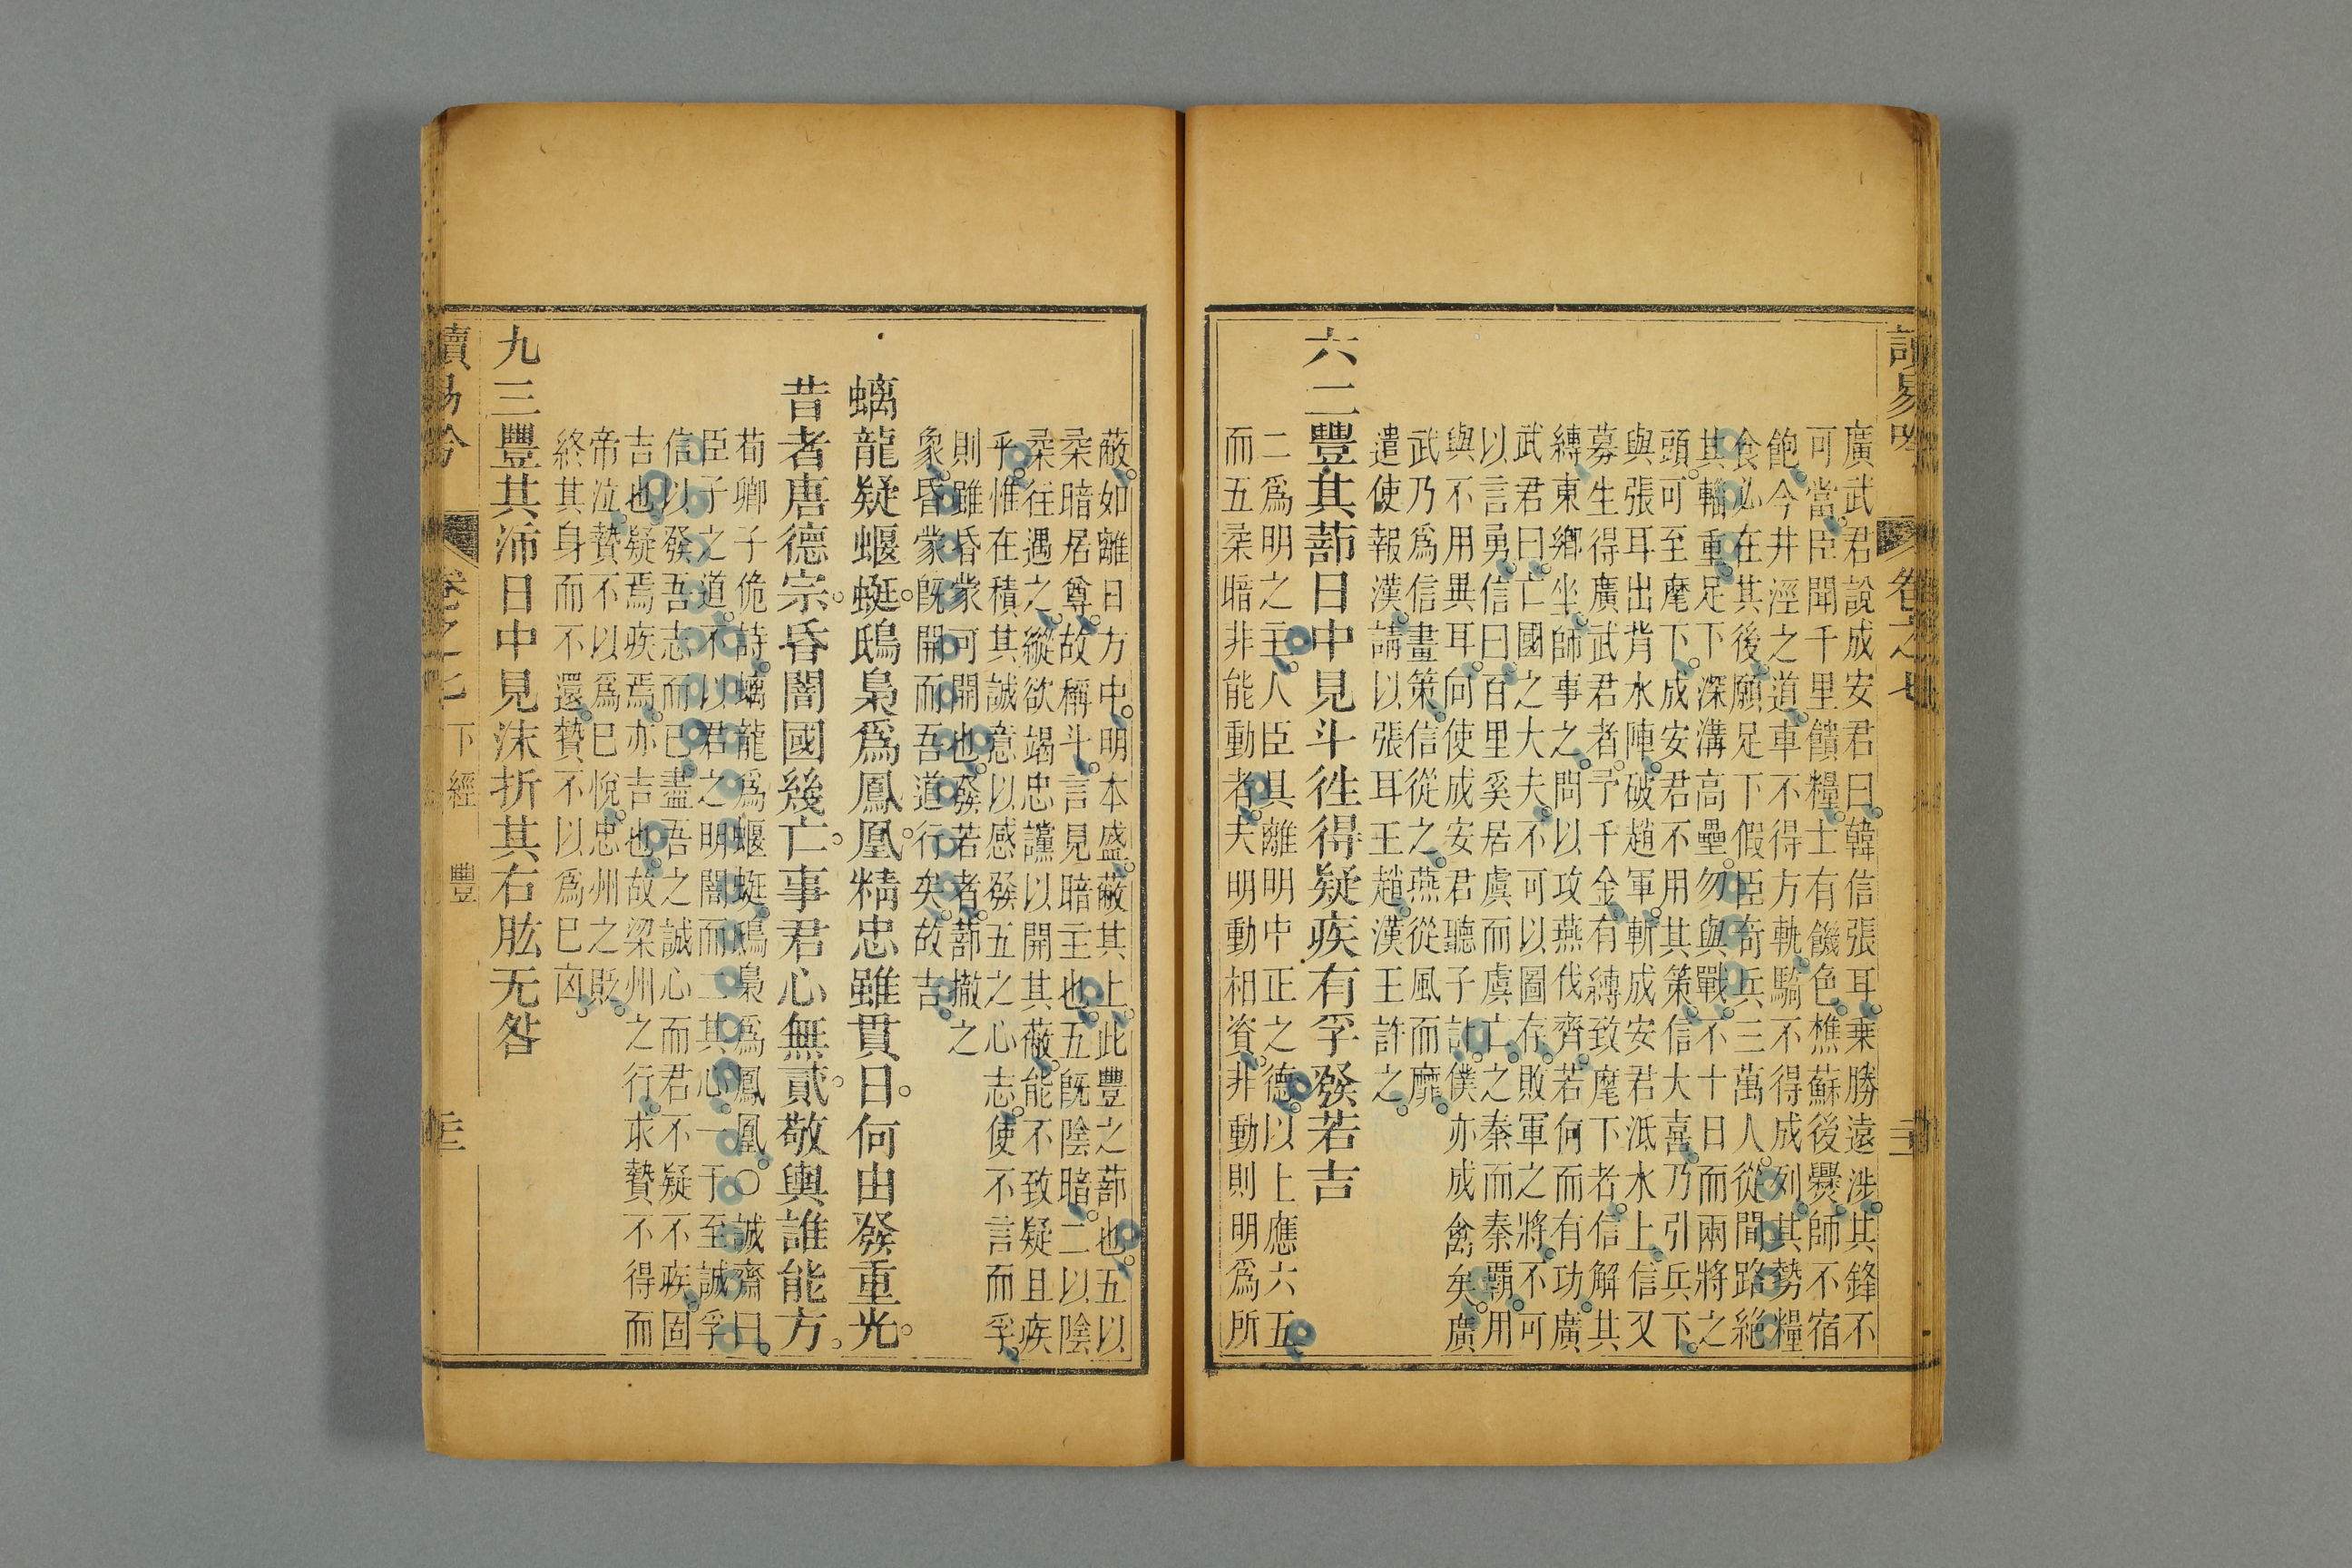 讀易吟 卷之七
廣武君說成安君曰韓信張耳乗勝遠涉其鋒不
可當臣聞千里饋糧士有饑色樵蘇後爨師不宿
飽今井涇之道車不得方軌騎不得成列其勢糧
食必在其後願足下假臣奇兵三萬人從間路絶
其輜重足下深溝高壘勿與戰不十日而兩將之
頭可至麾下成安君不用其策信大喜乃引兵下
與張耳出背水陣破趙軍斬成安君泜水上信又
募生得廣武君者予千金有縛致麾下者信解其
縛東鄉坐師事之問以攻燕伐齊若何而有功廣
武君曰亡國之大夫不可以圖存敗軍之將不可
以言勇信曰百里奚居虞而虞亡之秦而秦覇用
與不用異耳向使成安君聽子計僕亦成禽矣廣
武乃爲信畫策信從之燕從風而靡
遣使報漢請以張耳王趙漢王許之
六二豐其蔀日中見斗徃得疑疾有孚發若吉
二爲明之主人臣具離明中正之德以上應六五
而五柔暗非能動者夫明動相資非動則明爲所
蔽如離日方中明本盛蔽其上此豐之蔀也五以
柔暗居尊故稱斗言見暗主也五旣陰暗二以陰
柔往遇之縱欲竭忠讜以開其蔽能不致疑且疾
乎惟在積其誠意以感發五之心志使不言而孚
則雖昏蒙可開也發若者蔀撤之
象昏蒙旣開而吾道行矣故吉
螭龍疑蝘蜓鴟梟爲鳳凰精忠雖貫日何由發重光
昔者唐德宗昏闇國幾亡事君心無貳敬輿誰能方
荀卿子佹詩螭龍爲蝘蜓鴟梟爲鳳凰○誠齋曰
臣子之道不以君之明闇而二其心一于至誠孚
信以發吾志而已盡吾之誠心而君不疑不疾固
吉也疑焉疾焉亦吉也故梁州之行求贄不得而
帝泣贄不以爲已悅忠州之貶
終其身而不還贄不以爲已凶
九三豐其沛日中見沬折其右肱无咎
讀易吟 卷之七 下經 豐